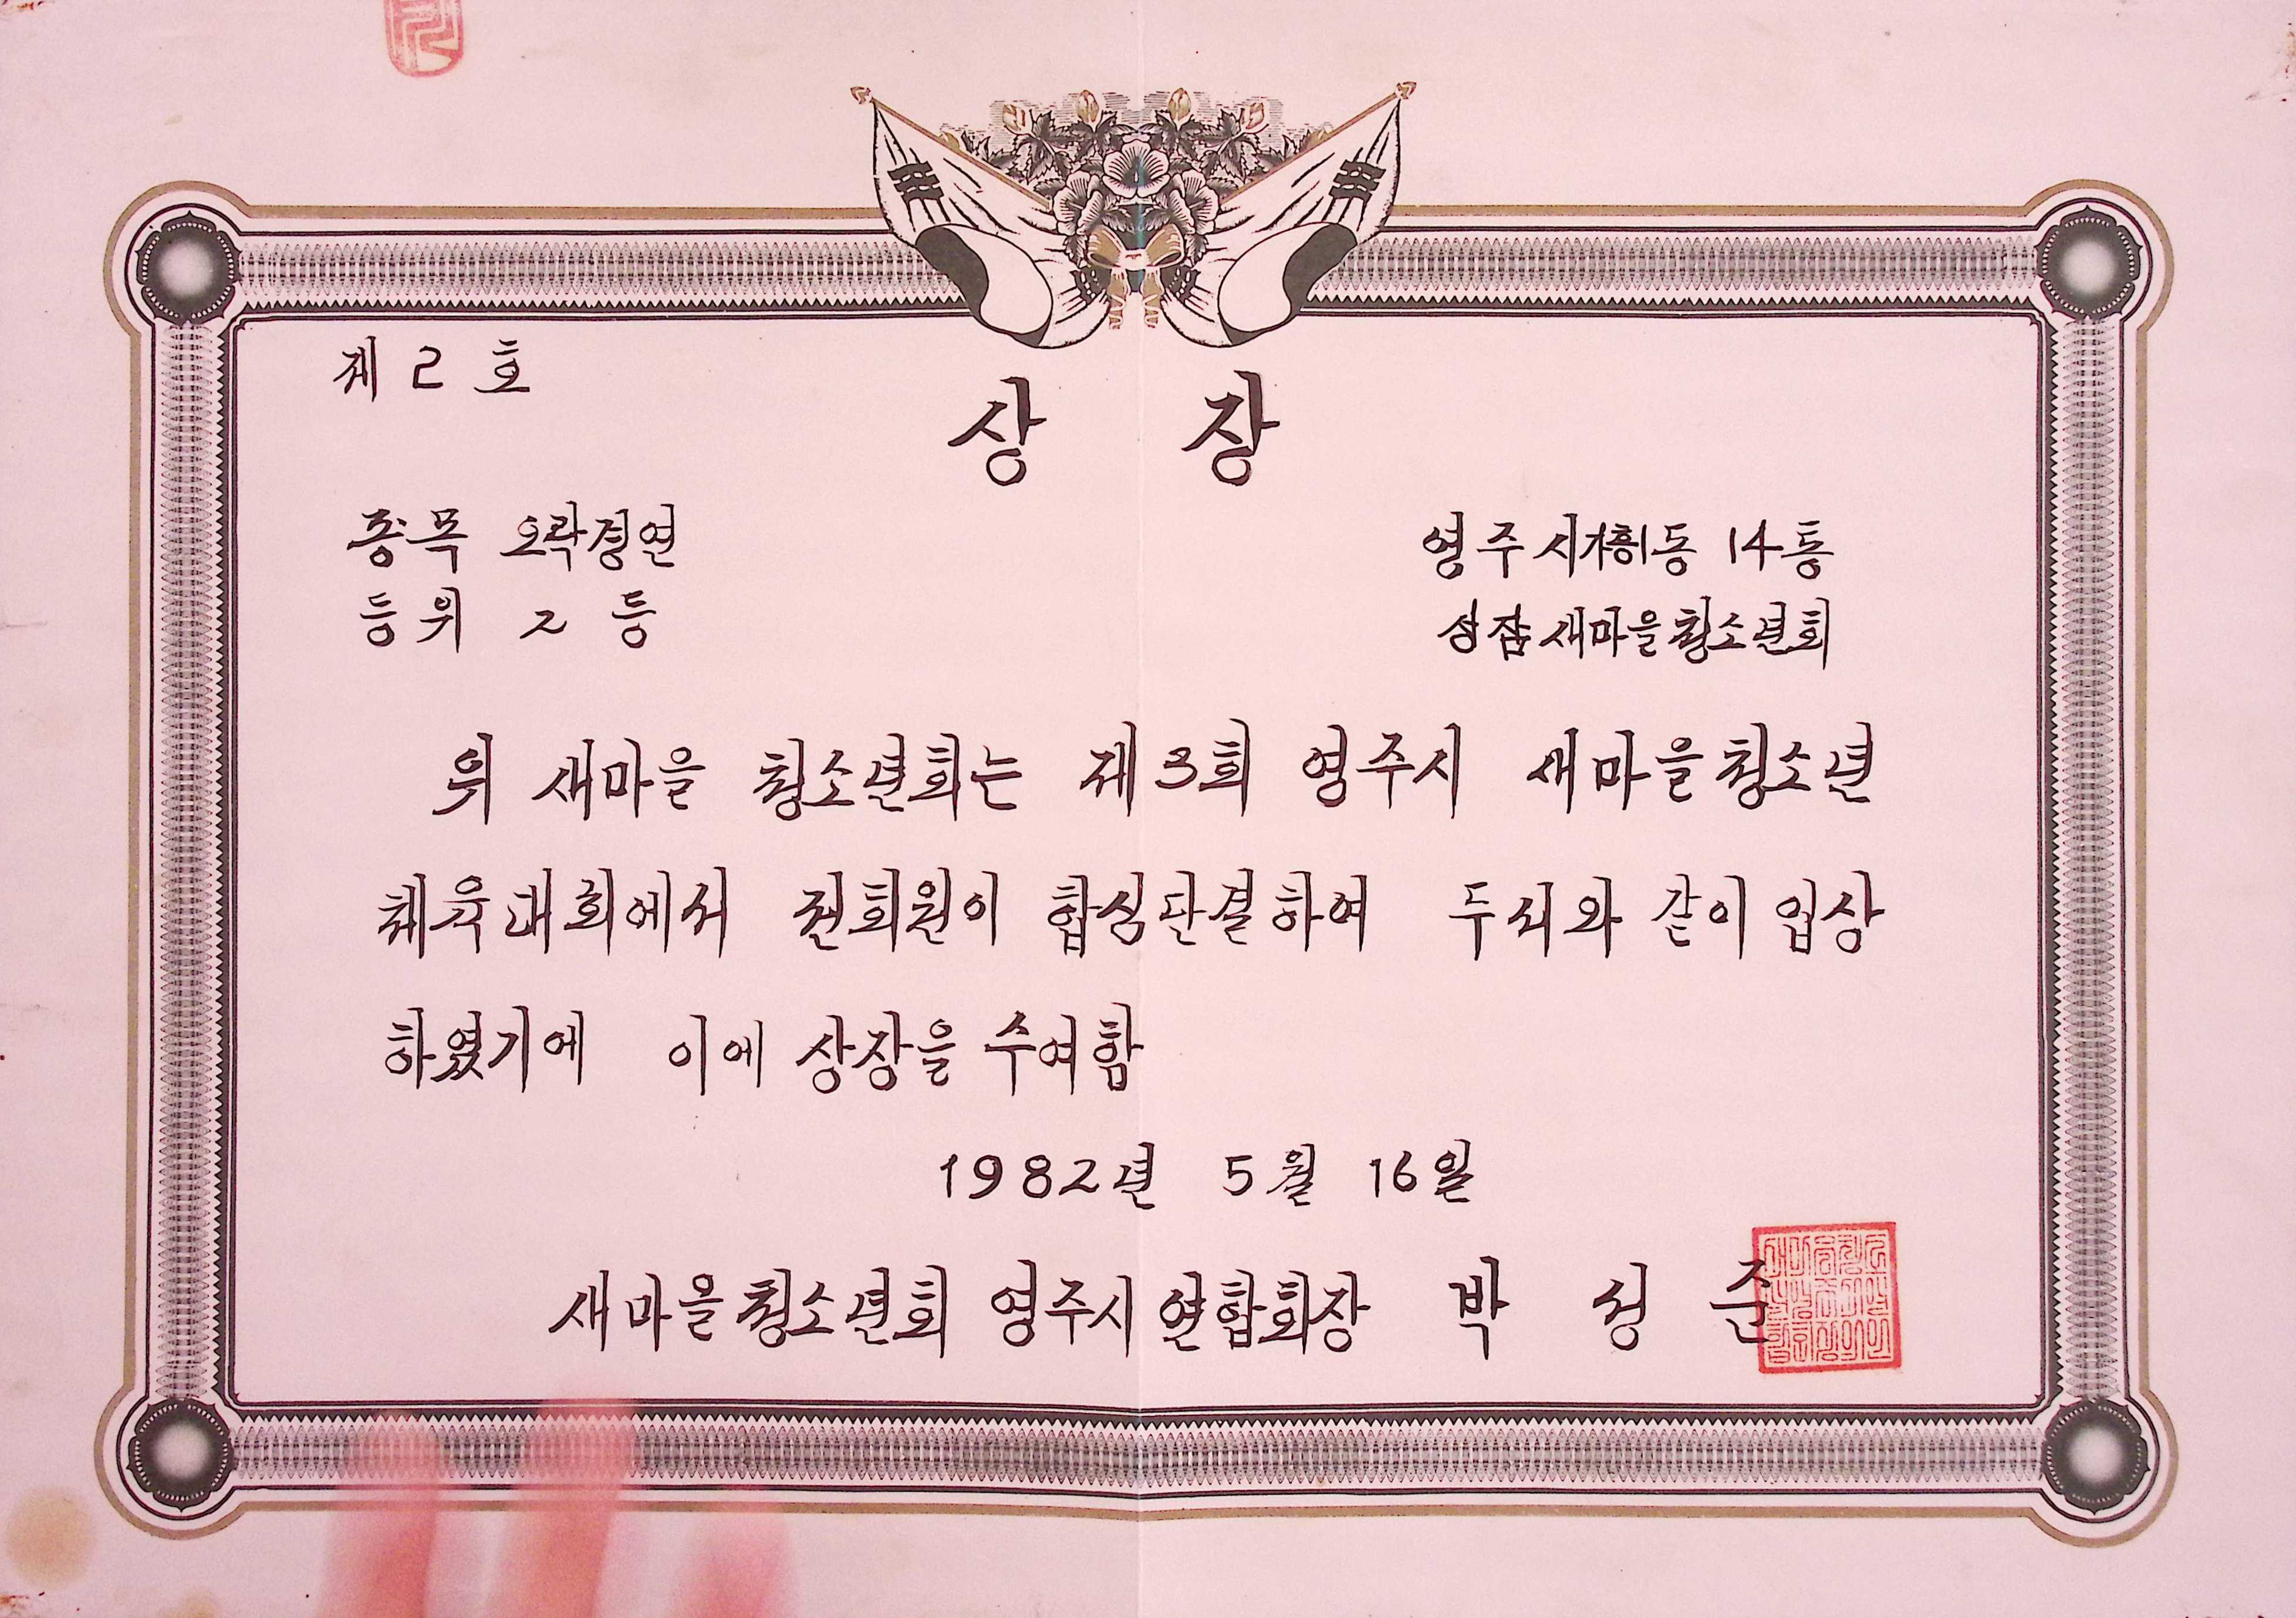 제 2 호
상 장
종목 오락경연
등위 2 등
영주시 가흥1동 14통
성잠 새마을청소년회
위 새마을 청소년회는 제3회 영주시 새마을청소년
체육대회에서 전회원이 합심단결하여 두서와 같이 입상
하였기에 이에 상장을 수여함
1982년 5월 16일
새마을청소년회 영주시 연합회장 박 성 준